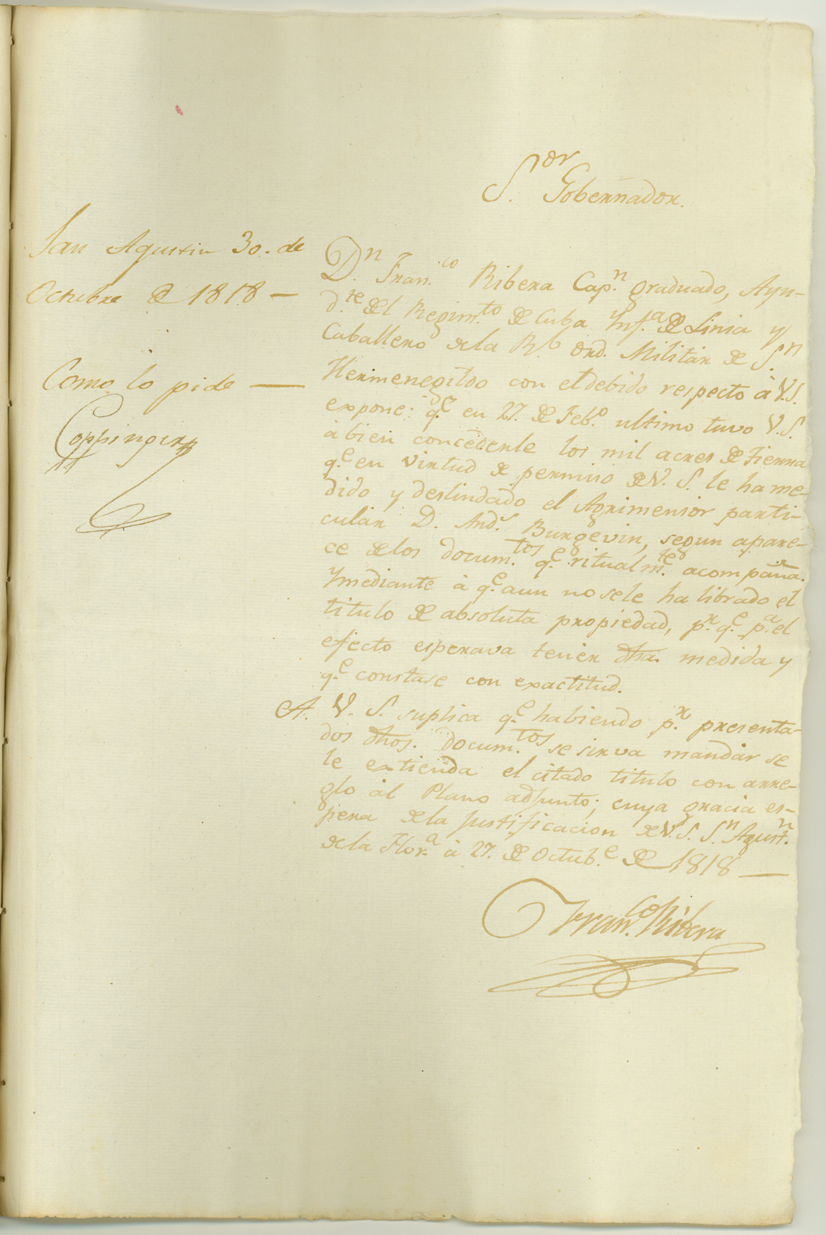 S.or Gobernador.
San Agustin 30. de
Octubre de 1818 —
Como lo pide —
Coppinger
Dn Fran.co Ribera Cap.n graduado, Ayu-
d.te del Regim.to de Cuba Ynf.a de Linia y
Caballero de la Rl. Ord. Militar de S.n
Hermenegildo con el debido respecto à V.S.
expone: q.e en 27. de Feb.o ultimo tuvo V.S.
à bien concederle los mil acres de tierra
q.e en virtud de permiso de V. S. le ha me-
dido y deslindado el Agrimensor parti-
cular D. And.s Burgevin, segun apare-
ce de los docum.tos q.e ritualm.te acompaña.
Ymediante à q.e aun no se le ha librado el
titulo de absoluta propiedad, p.r q.e p.a el
efecto esperava tener dha. medida y
q.e constase con exactitud.
A. V. S. suplica q.e habiendo p.r presenta-
dos dhos. docum.tos se sirva mandar se
le extienda el citado titulo con arre-
glo al Plano adjunto; cuya gracia es-
pera de la justificacion de V. S. S.n Agust.n
de la Flor.a à 27. de Octub.e de 1818 —
Fran.co Ribera